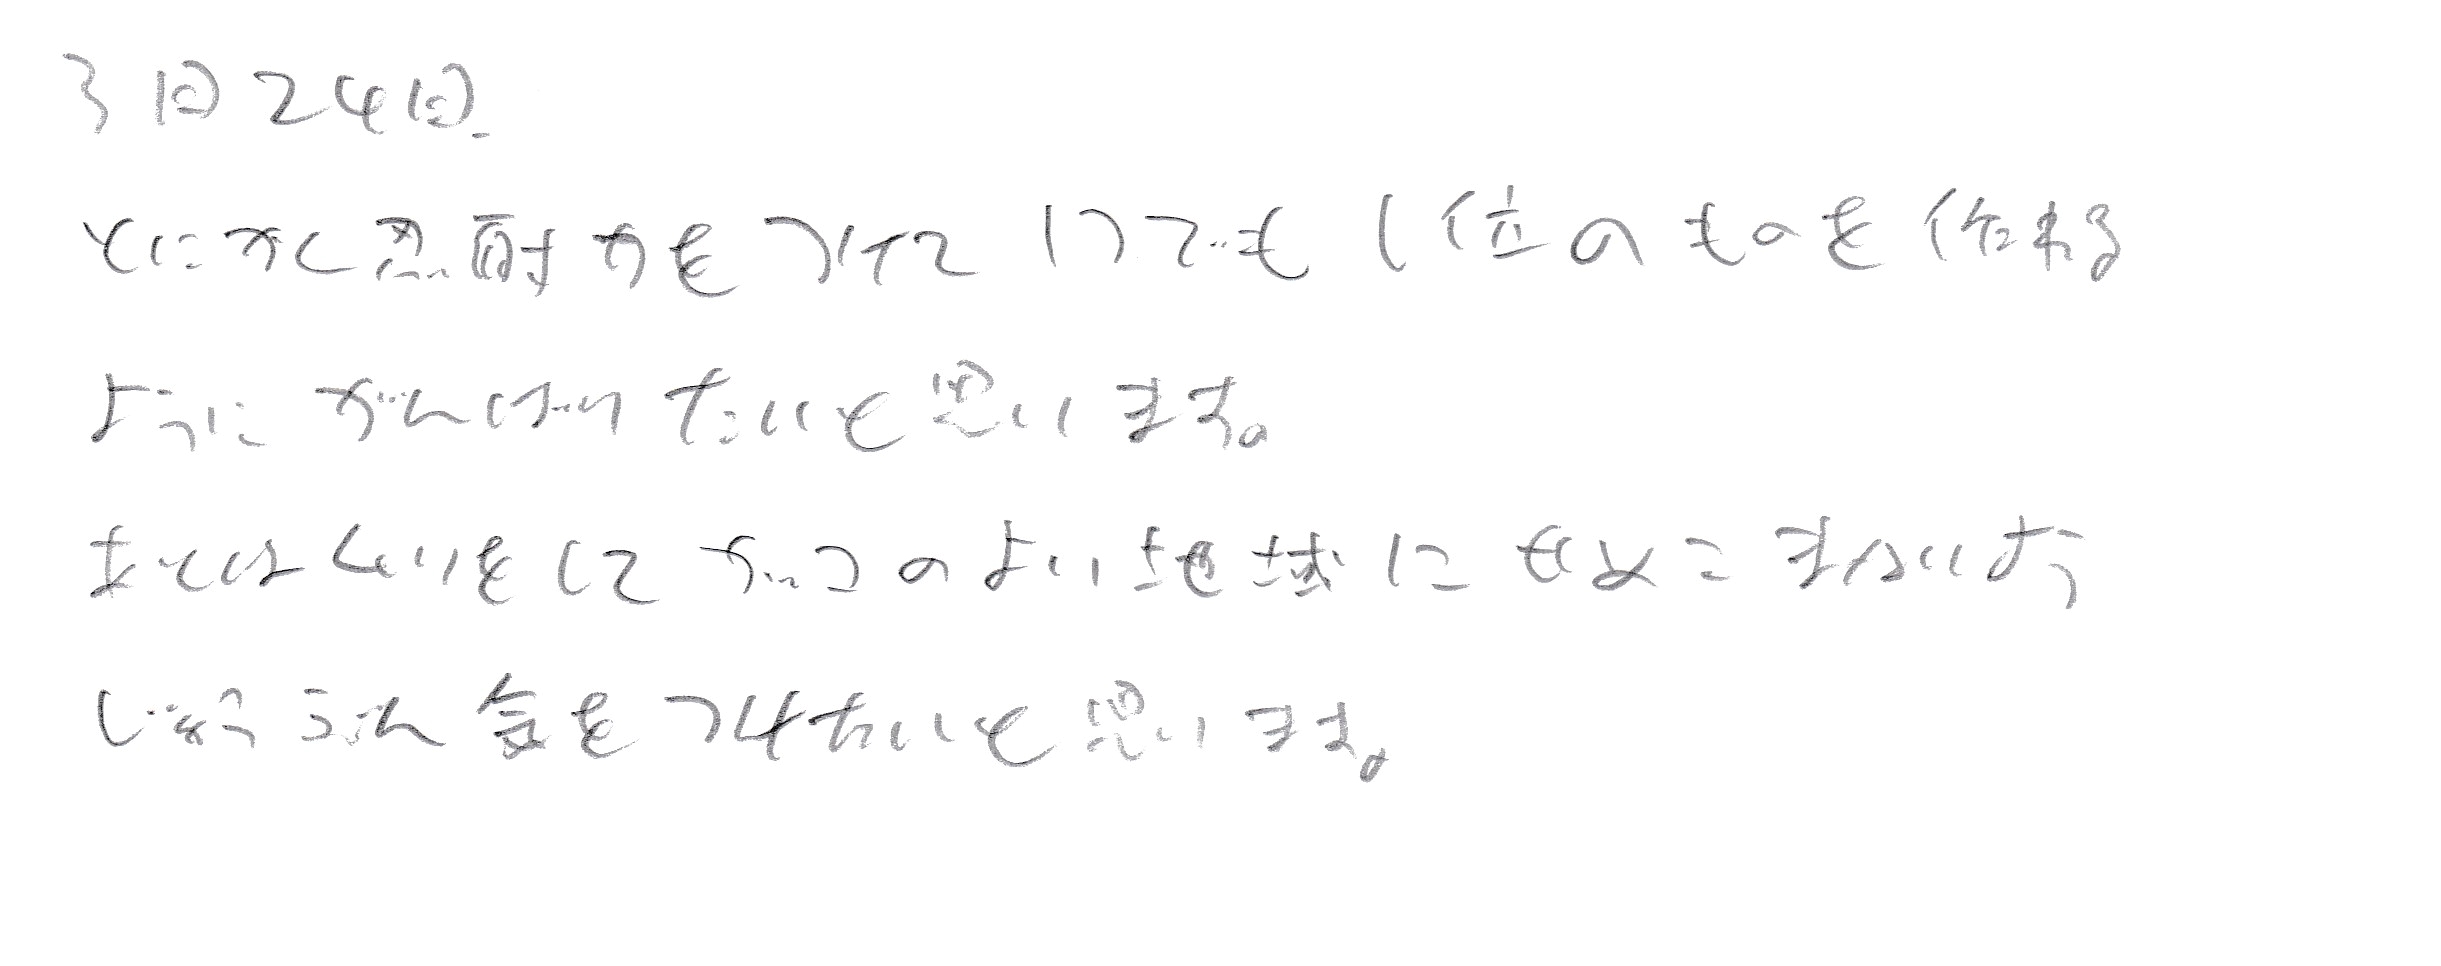 3日24日.
とにかく忍耐力をつけていつでも1位のものを作れる
ようにがんばりたいと思います。
あとはムリをして のよい地域に こまないよう
じゅうぶん気をつけたいと思います。